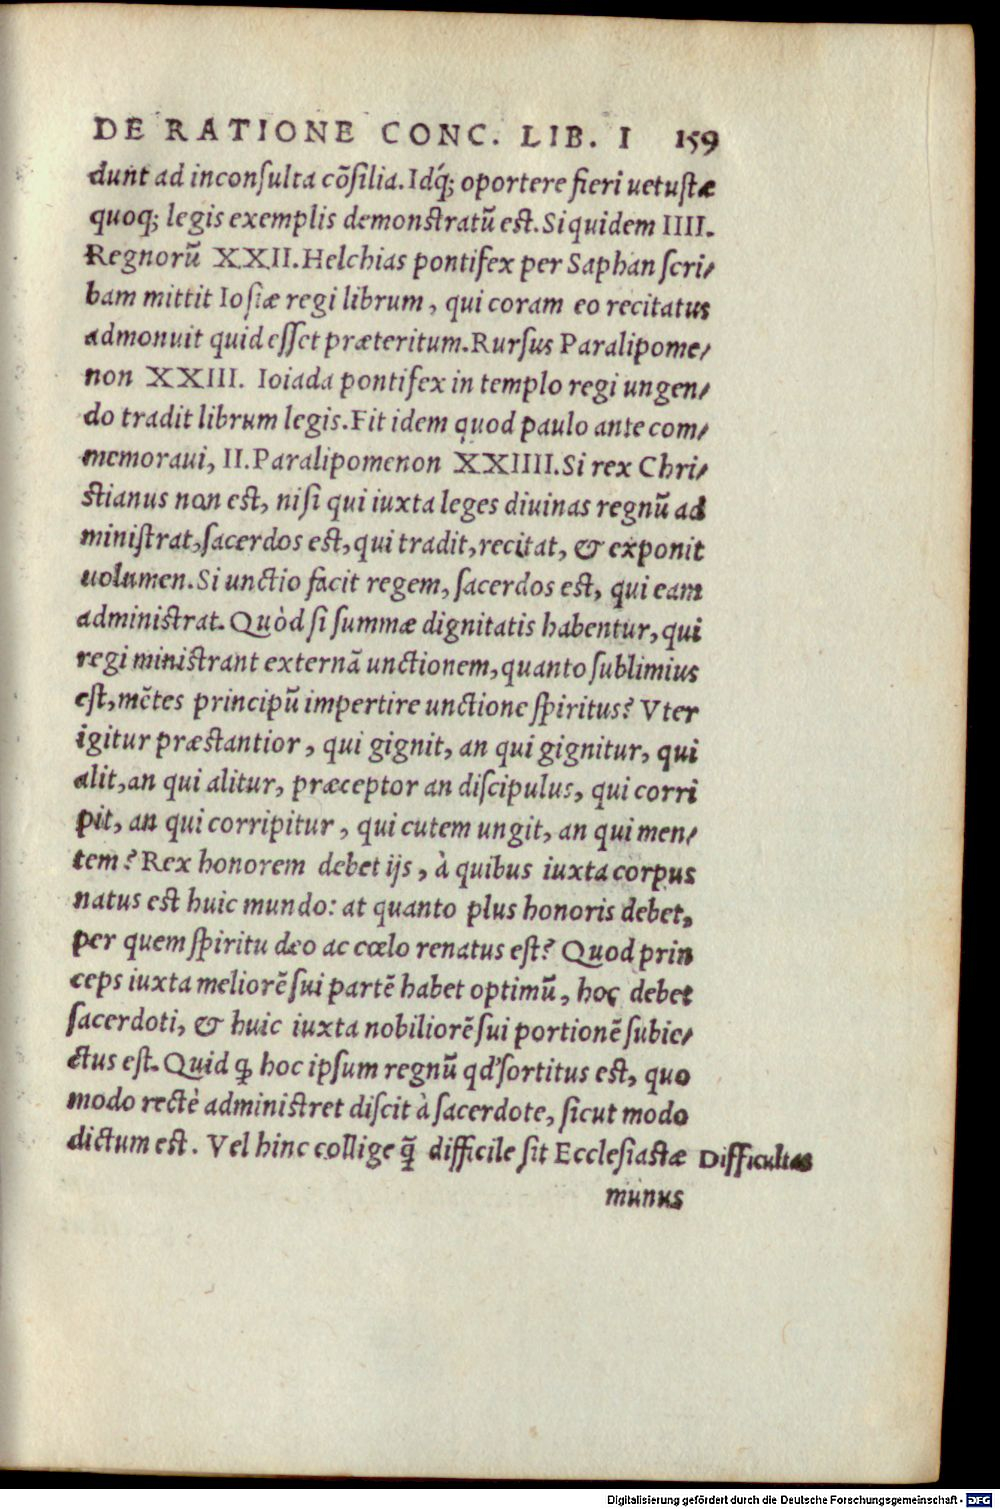 DE RATIONE CONC. LIB. I 159
dunt ad inconsulta cõsilia. Idq́; oportere fieri uetustæ
quoq; legis exemplis demonstratũ est. Siquidem IIII.
Regnorũ XXII. Helchias pontifex per Saphan scri-
bam mittit Iosiæ regi librum, qui coram eo recitatus
admonuit quid esset præteritum. Rursus Paralipome-
non XXIII. Ioiada pontifex in templo regi ungen-
do tradit librum legis. Fit idem quod paulo ante com-
memoraui, II. Paralipomenon XXIIII. Si rex Chri-
stianus non est, nisi qui iuxta leges diuinas regnũ ad
ministrat, sacerdos est, qui tradit, recitat, & exponit
uolumen. Si unctio facit regem, sacerdos est, qui eam
administrat. Quòd si summæ dignitatis habentur, qui
regi ministrant externã unctionem, quanto sublimius
est, mẽtes principũ impertire unctione spiritus? Vter
igitur præstantior, qui gignit, an qui gignitur, qui
alit, an qui alitur, præceptor an discipulus, qui corri
pit, an qui corripitur, qui cutem ungit, an qui men-
tem? Rex honorem debet ijs, à quibus iuxta corpus
natus est huic mundo: at quanto plus honoris debet,
per quem spiritu deo ac cœlo renatus est? Quod prin
ceps iuxta meliorẽ sui partẽ habet optimũ, hoc debet
sacerdoti, & huic iuxta nobiliorẽ sui portionẽ subie-
ctus est. Quid ꝙ hoc ipsum regnũ qd' sortitus est, quo
modo rectè administret discit à sacerdote, sicut modo
dictum est. Vel hinc collige q̃ difficile sit Ecclesiastæ
Difficultas
munus
Digitalisierung gefördert durch die Deutsche Forschungsgemeinschaft - DFG